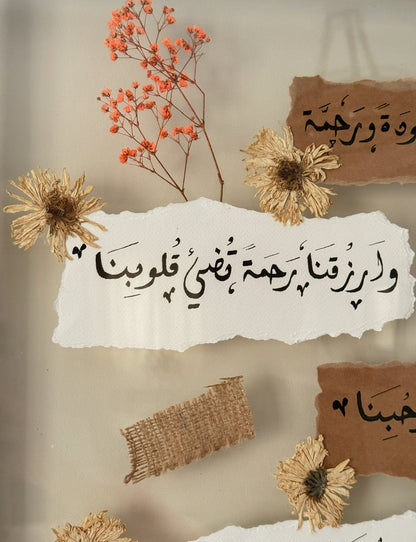 مودة ورحمة
وارزقنا رحمة تُضيئ قلوبنا